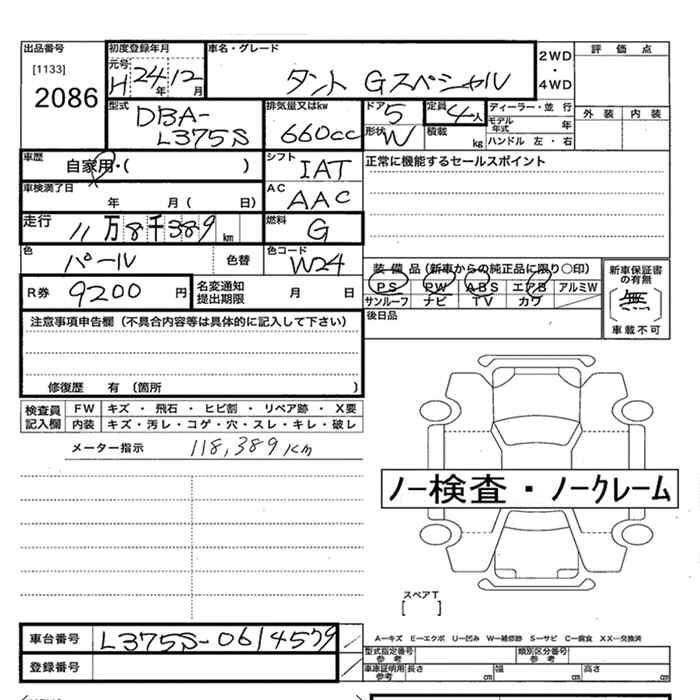 出品番号 初度登録年月 車名・グレード 2WD ・ 4WD 評価点
[1133] 元号 H 24年 12月 タント Gスペシャル
2086
型式 DBA-L375S 排気量又はkw 660cc ドア 5 定員 4人 ディーラー・並行 外装 内装
形状 W 積載 kg モデル年式 年 ハンドル 左・右
車歴 自家用・( ) シフト IAT 正常に機能するセールスポイント
車検満了日 年 月( 日) AC AAC
走行 11万8千389km 燃料 G
色 パール 色替 色コード W24 装備品(新車からの純正品に限り○印) 新車保証書の有無
PS PW ABS エアB アルミW 〔無〕
R券 9200円 名変通知提出期限 月 日 サンルーフ ナビ TV カワ 車載不可
後日品
注意事項申告欄(不具合内容等は具体的に記入して下さい)
修復歴 有(箇所 )
検査員記入欄 FW キズ ・ 飛石 ・ ヒビ割 ・ リペア跡 ・ X要
内装 キズ・汚レ・コゲ・穴・スレ・キレ・破レ
メーター指示 118,389km
ノー検査・ノークレーム
スペアT
[ ]
車台番号 L375S-0614579 A―キズ E―エクボ U―凹み W―補修跡 S―サビ C―腐食 XX―交換済
登録番号 型式指定番号 参考 類別区分番号 参考
車車証明用 参考 長さ cm 幅 cm 高さ cm